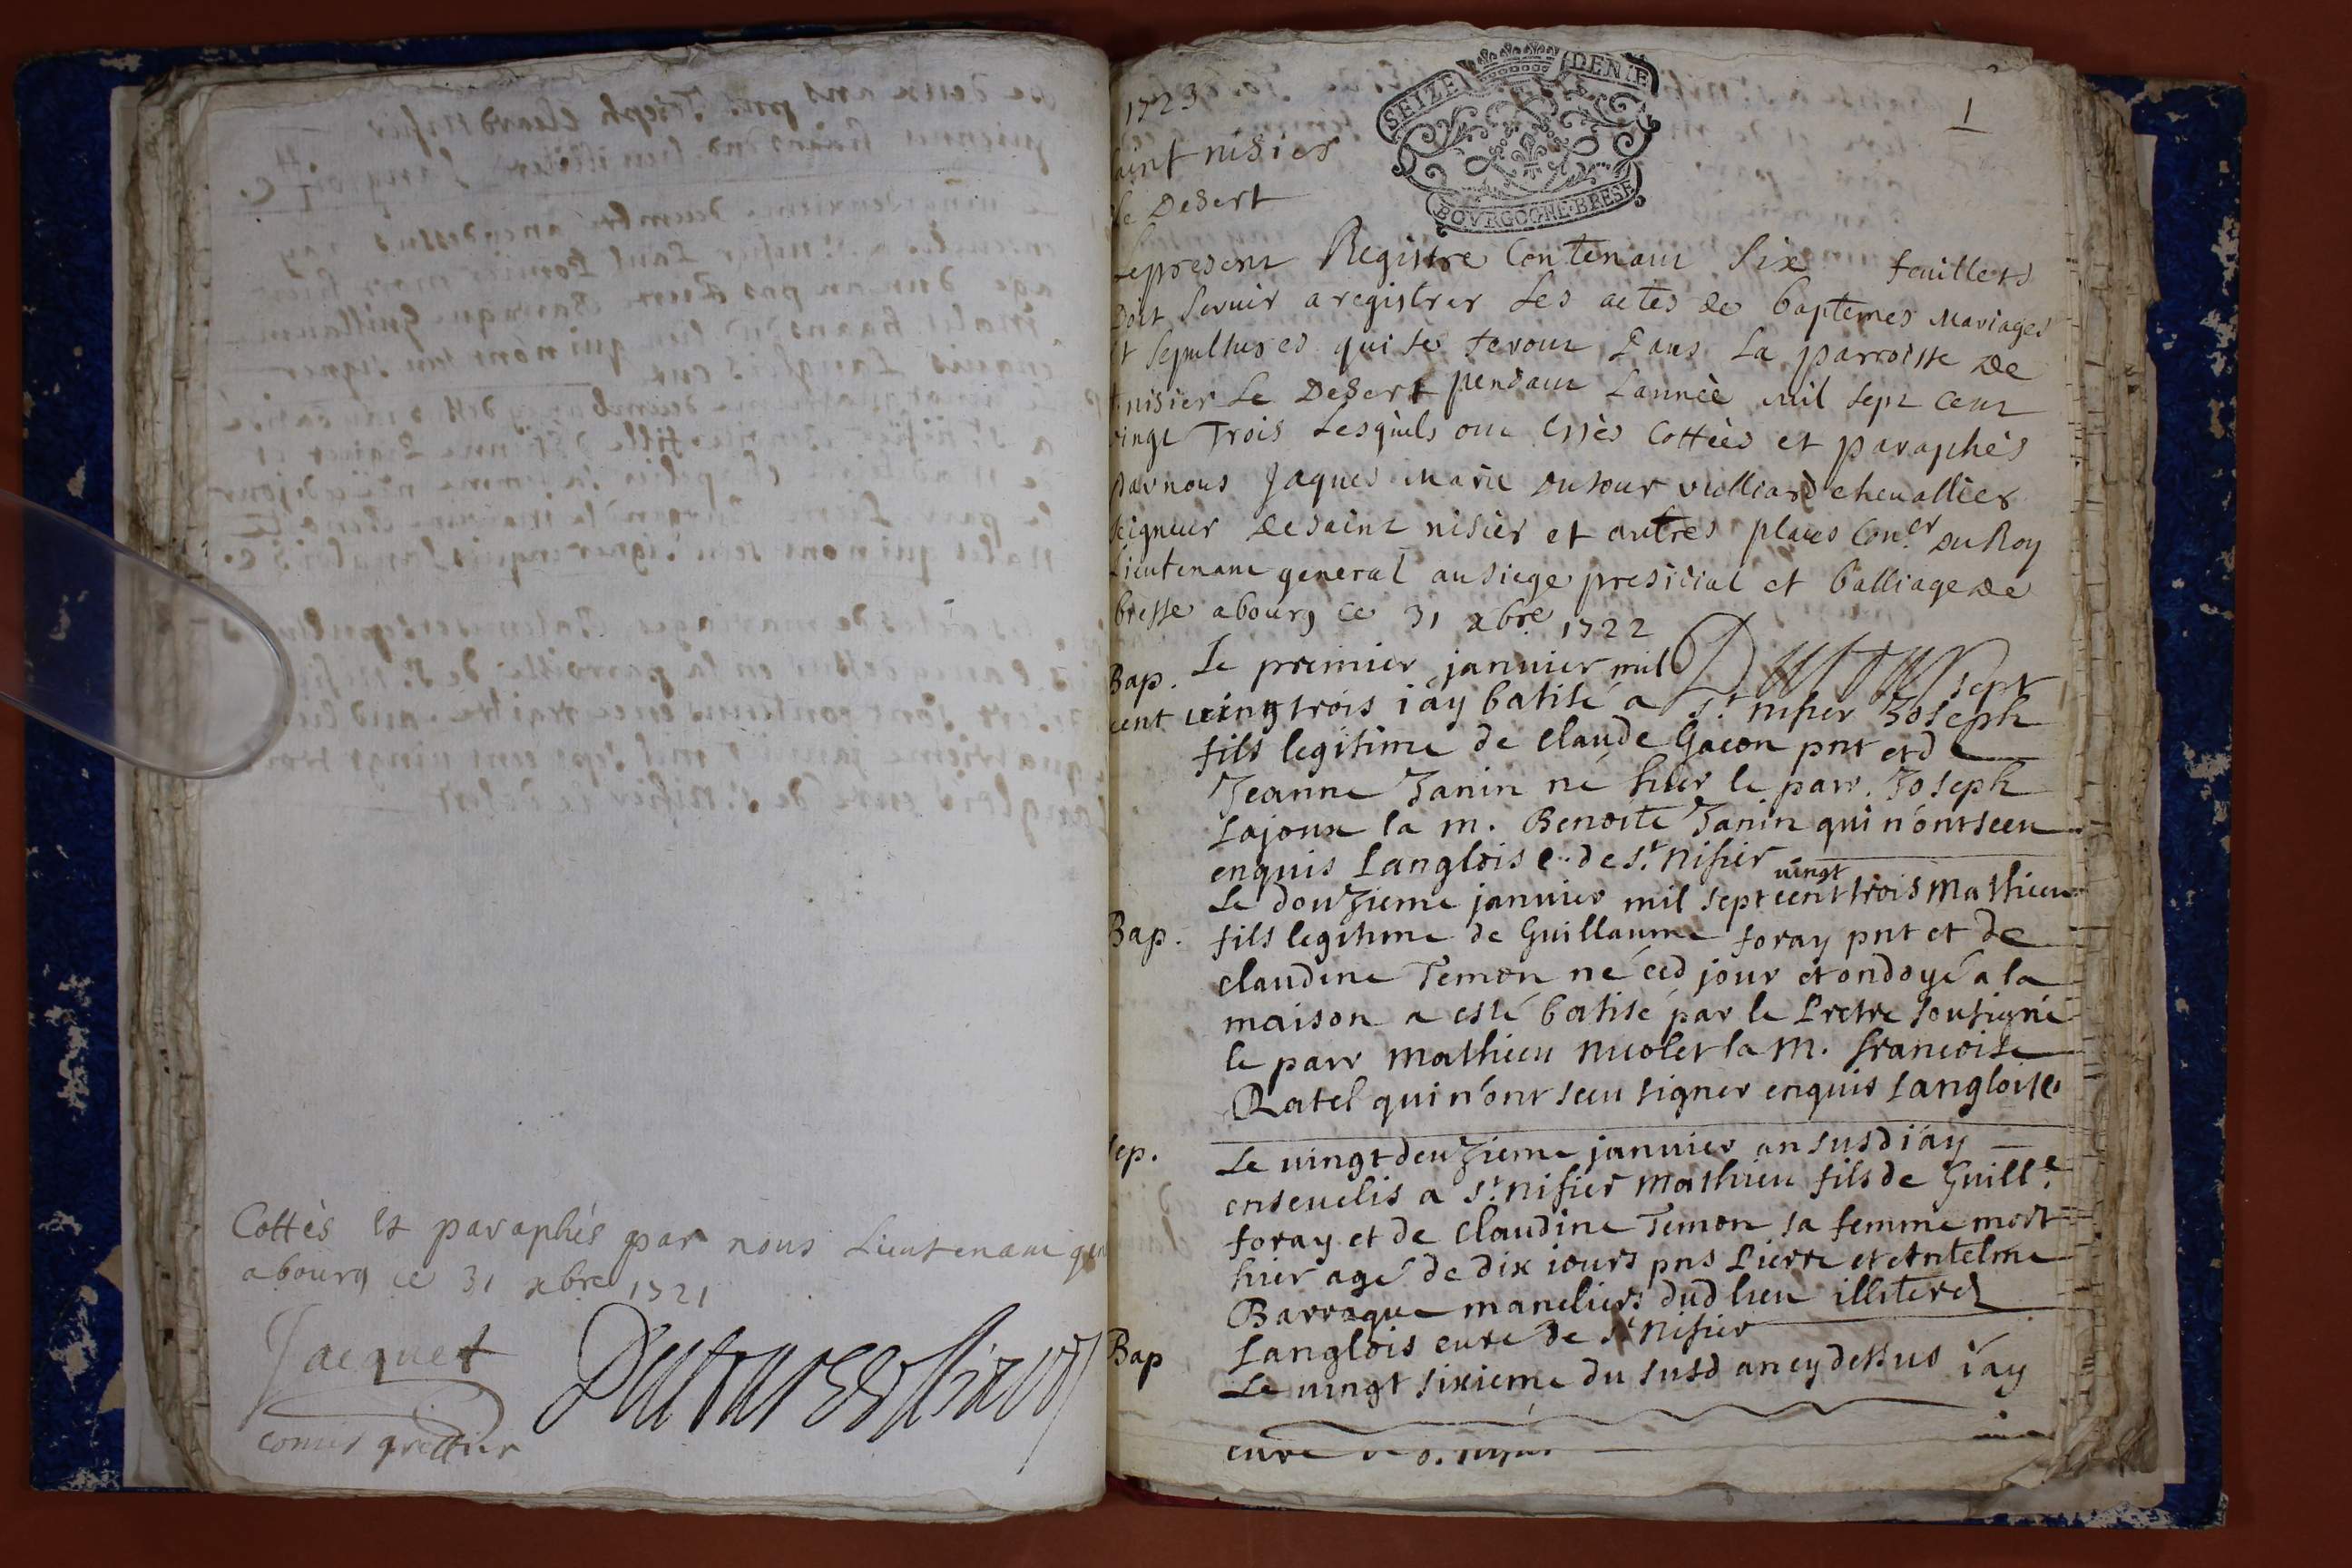 Cottès et paraphés par nous Lieutenant gen
abourg ce 31 xbre 1721
Jacquet
comis greffier
1723
SEIZE DENIE
BOVRGOGNE·BRESE
1
aint nisier
le Desert
Le present Registre Contenant Six feuillets
Doit Servir a registrer Les actes de baptemes Mariages
et Sepultures qui se feront Dans La parroisse De
t nisier Le Desert pendant L'annèe Mil Sept Cent
vingt Trois Lesquels ont Estès Cottèes et paraphès
par nous Jaques Marie Dutour vuilliard chevallier
Seigneur De saint nisier et autres places Con.er Du Roy
Lieutenant general au siege presidial et balliage De
bresse a bourg ce 31 xbre 1722
Bap. Le premier janvier mil sept
cent vingtrois i'ay batisé a St. nisier Joseph
fils legitime de claude Gacon pnt et de
Jeanne Janin né hier le parr. Joseph
Lajoux la m. Benoite Janin qui n'ont sceu
enquis Langlois c. de St. Nisier
Le douzieme janvier mil sept cent vingt trois Mathieu
Bap. fils legitime de Guillaume foray pnt et de
claudine Temon né ced jour et ondoyé a la
maison a esté batisé par le Pretre soussigné
le parr Mathieu Nicolet la M. francoise
Ratel qui n'ont sceu signer enquis Langlois c.
Sep. Le vingt deuzieme janvier an susd i'ay
ensevelis a St. Nisier Mathieu fils de Guill.e
foray et de Claudine Temon sa femme mort
hier agé de dix iours pns Pierre et Antelme
Barraque maneliers dud lieu illiteres
Langlois curé de St Nisier
Bap Le vingt sixieme du susd an cy dessus i'ay
curé de